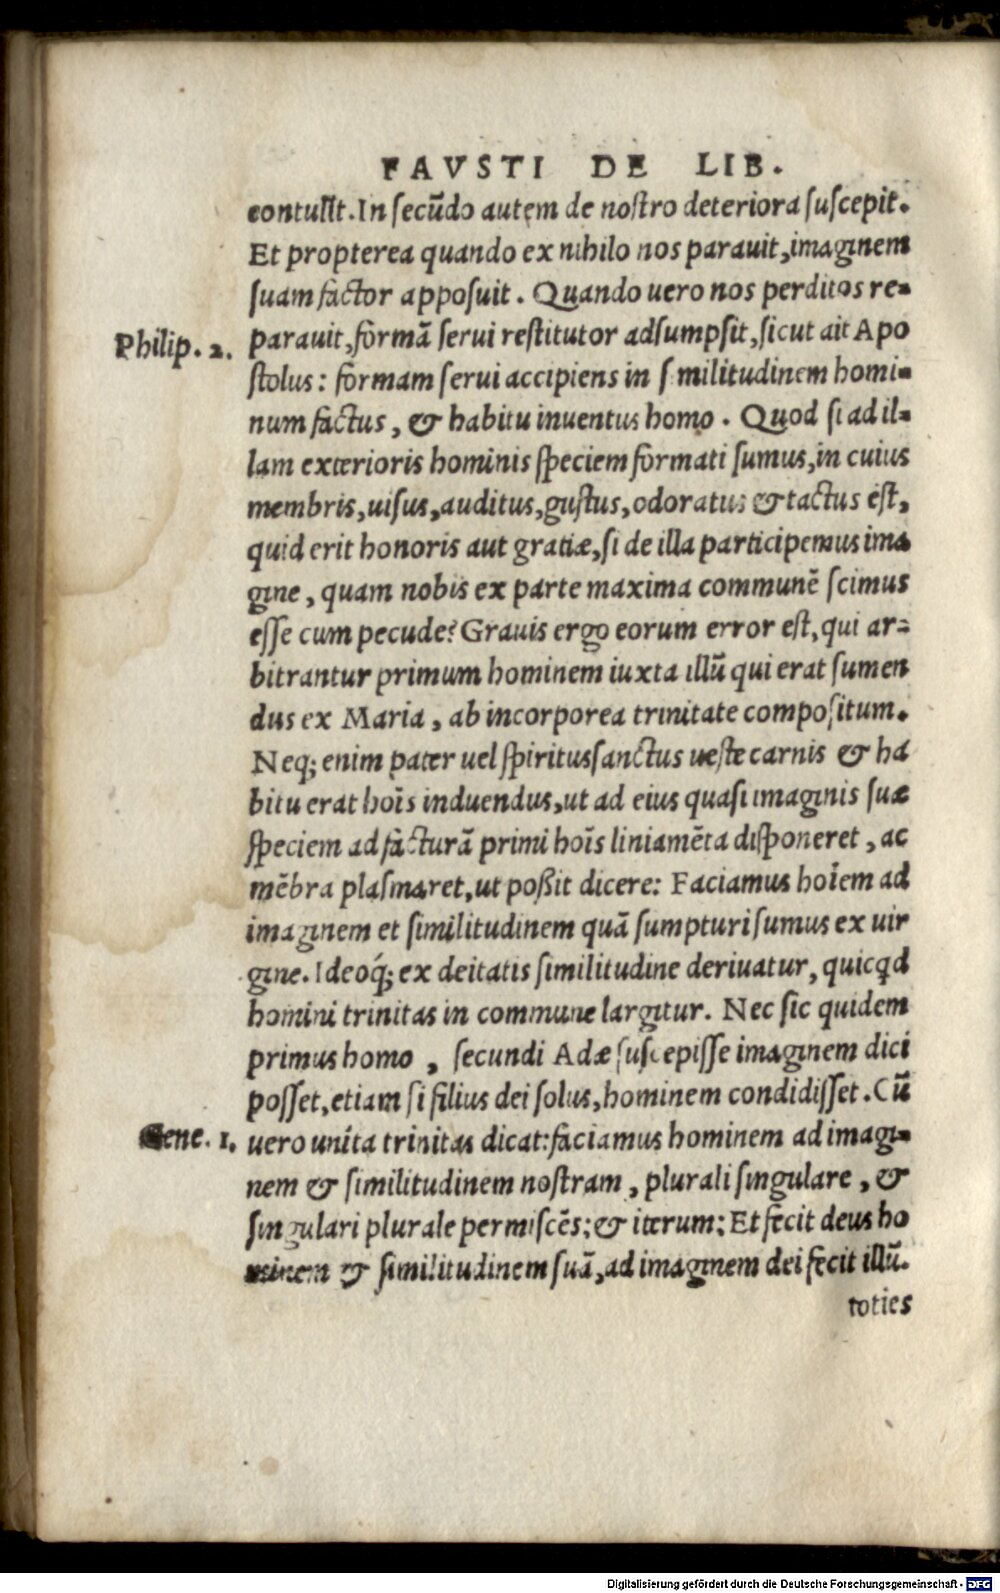 FAVSTI DE LIB.
contulit. In secūdo autem de nostro deteriora suscepit.
Et propterea quando ex nihilo nos parauit, imaginem
suam factor apposuit. Quando uero nos perditos re=
Philip. 2. parauit, formā serui restitutor adsumpsit, sicut ait Apo
stolus: formam serui accipiens in similitudinem homi=
num factus, & habitu inuentus homo. Quod si ad il=
lam exterioris hominis speciem formati sumus, in cuius
membris, uisus, auditus, gustus, odoratus & tactus est,
quid erit honoris aut gratiæ, si de illa participemus ima
gine, quam nobis ex parte maxima communē scimus
esse cum pecude? Grauis ergo eorum error est, qui ar=
bitrantur primum hominem iuxta illū qui erat sumen
dus ex Maria, ab incorporea trinitate compositum.
Neq; enim pater uel spiritussanctus ueste carnis & ha
bitu erat hoīs induendus, ut ad eius quasi imaginis suæ
speciem ad facturā primi hoīs liniamēta disponeret, ac
mēbra plasmaret, ut poßit dicere: Faciamus hoīem ad
imaginem et similitudinem quā sumpturi sumus ex uir
gine. Ideoq́; ex deitatis similitudine deriuatur, quicqd
homini trinitas in commune largitur. Nec sic quidem
primus homo, secundi Adæ suscepisse imaginem dici
posset, etiam si filius dei solus, hominem condidisset. Cū
Gene. 1. uero unita trinitas dicat: faciamus hominem ad imagi=
nem & similitudinem nostram, plurali singulare, &
singulari plurale permiscēs: & iterum: Et fecit deus ho
minem & similitudinem suā, ad imaginem dei fecit illū.
toties
Digitalisierung gefördert durch die Deutsche Forschungsgemeinschaft - DFG